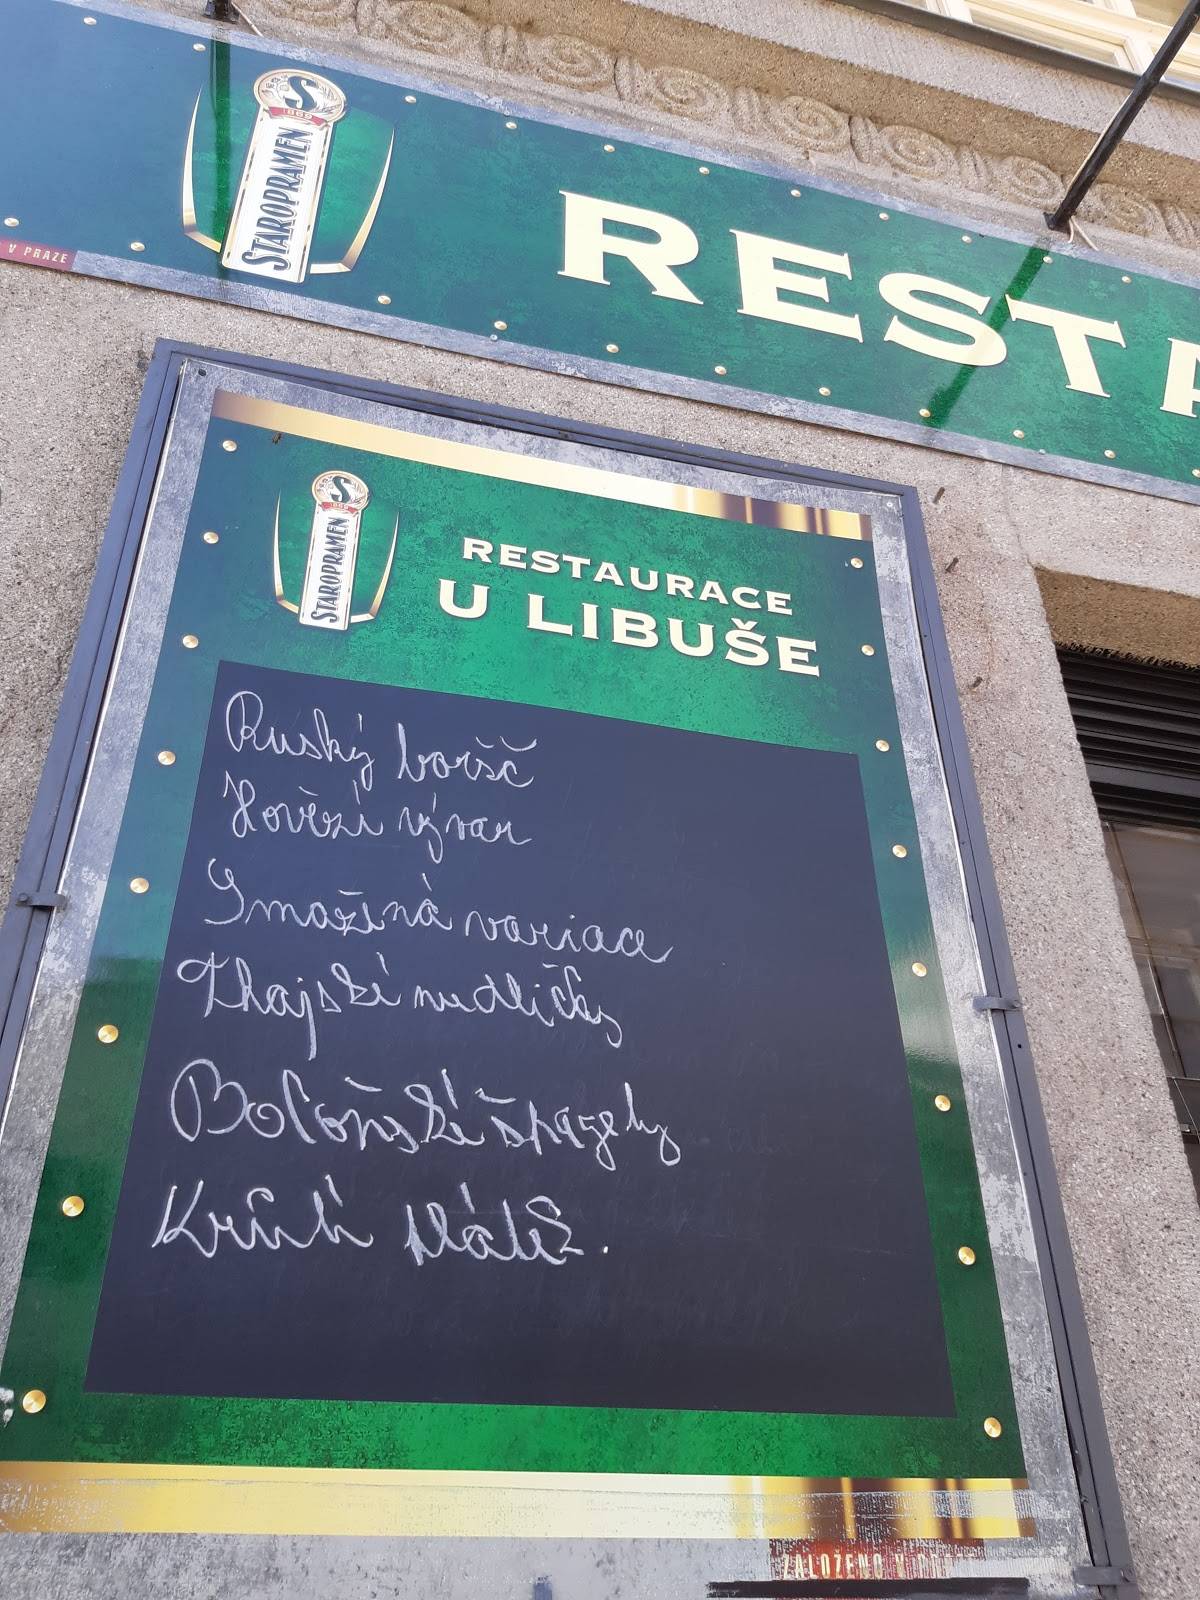 STAROPRAMEN
1869
V PRAZE
REST
STAROPRAMEN
1869
RESTAURACE
U LIBUŠE
Ruský boršč
Hovězí vývar
Smažená variace
Thajské nudličky
Boloňské špagety
Krůtí
ZALOŽENO V PR